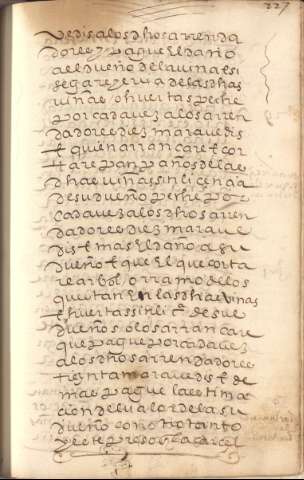 227
vedis a los dhos arrenda
dores y pague el daño
a el dueño de la viña e si
segare yerva de las dhas
viñas o huertas peche
por cada vez a los arren
dadores diez maravedis
e quien arrancare e cor
tare panpanos de las
dhas viñas sin licencia
de su dueño peche por
cada vez a los dhos arren
dadores diez marave
dis e mas el daño a su
dueño e que el que corta
re arbol o rramo de los
que estan en las dhas viñas
e huertas sin liª de sus
dueños o los arrancare
que pague por cada vez
a los dhos arrendadores
treynta maravedis e de
mas pague la estima
cion del valor de la su
dueño con otro tanto
y este preso en la carcel